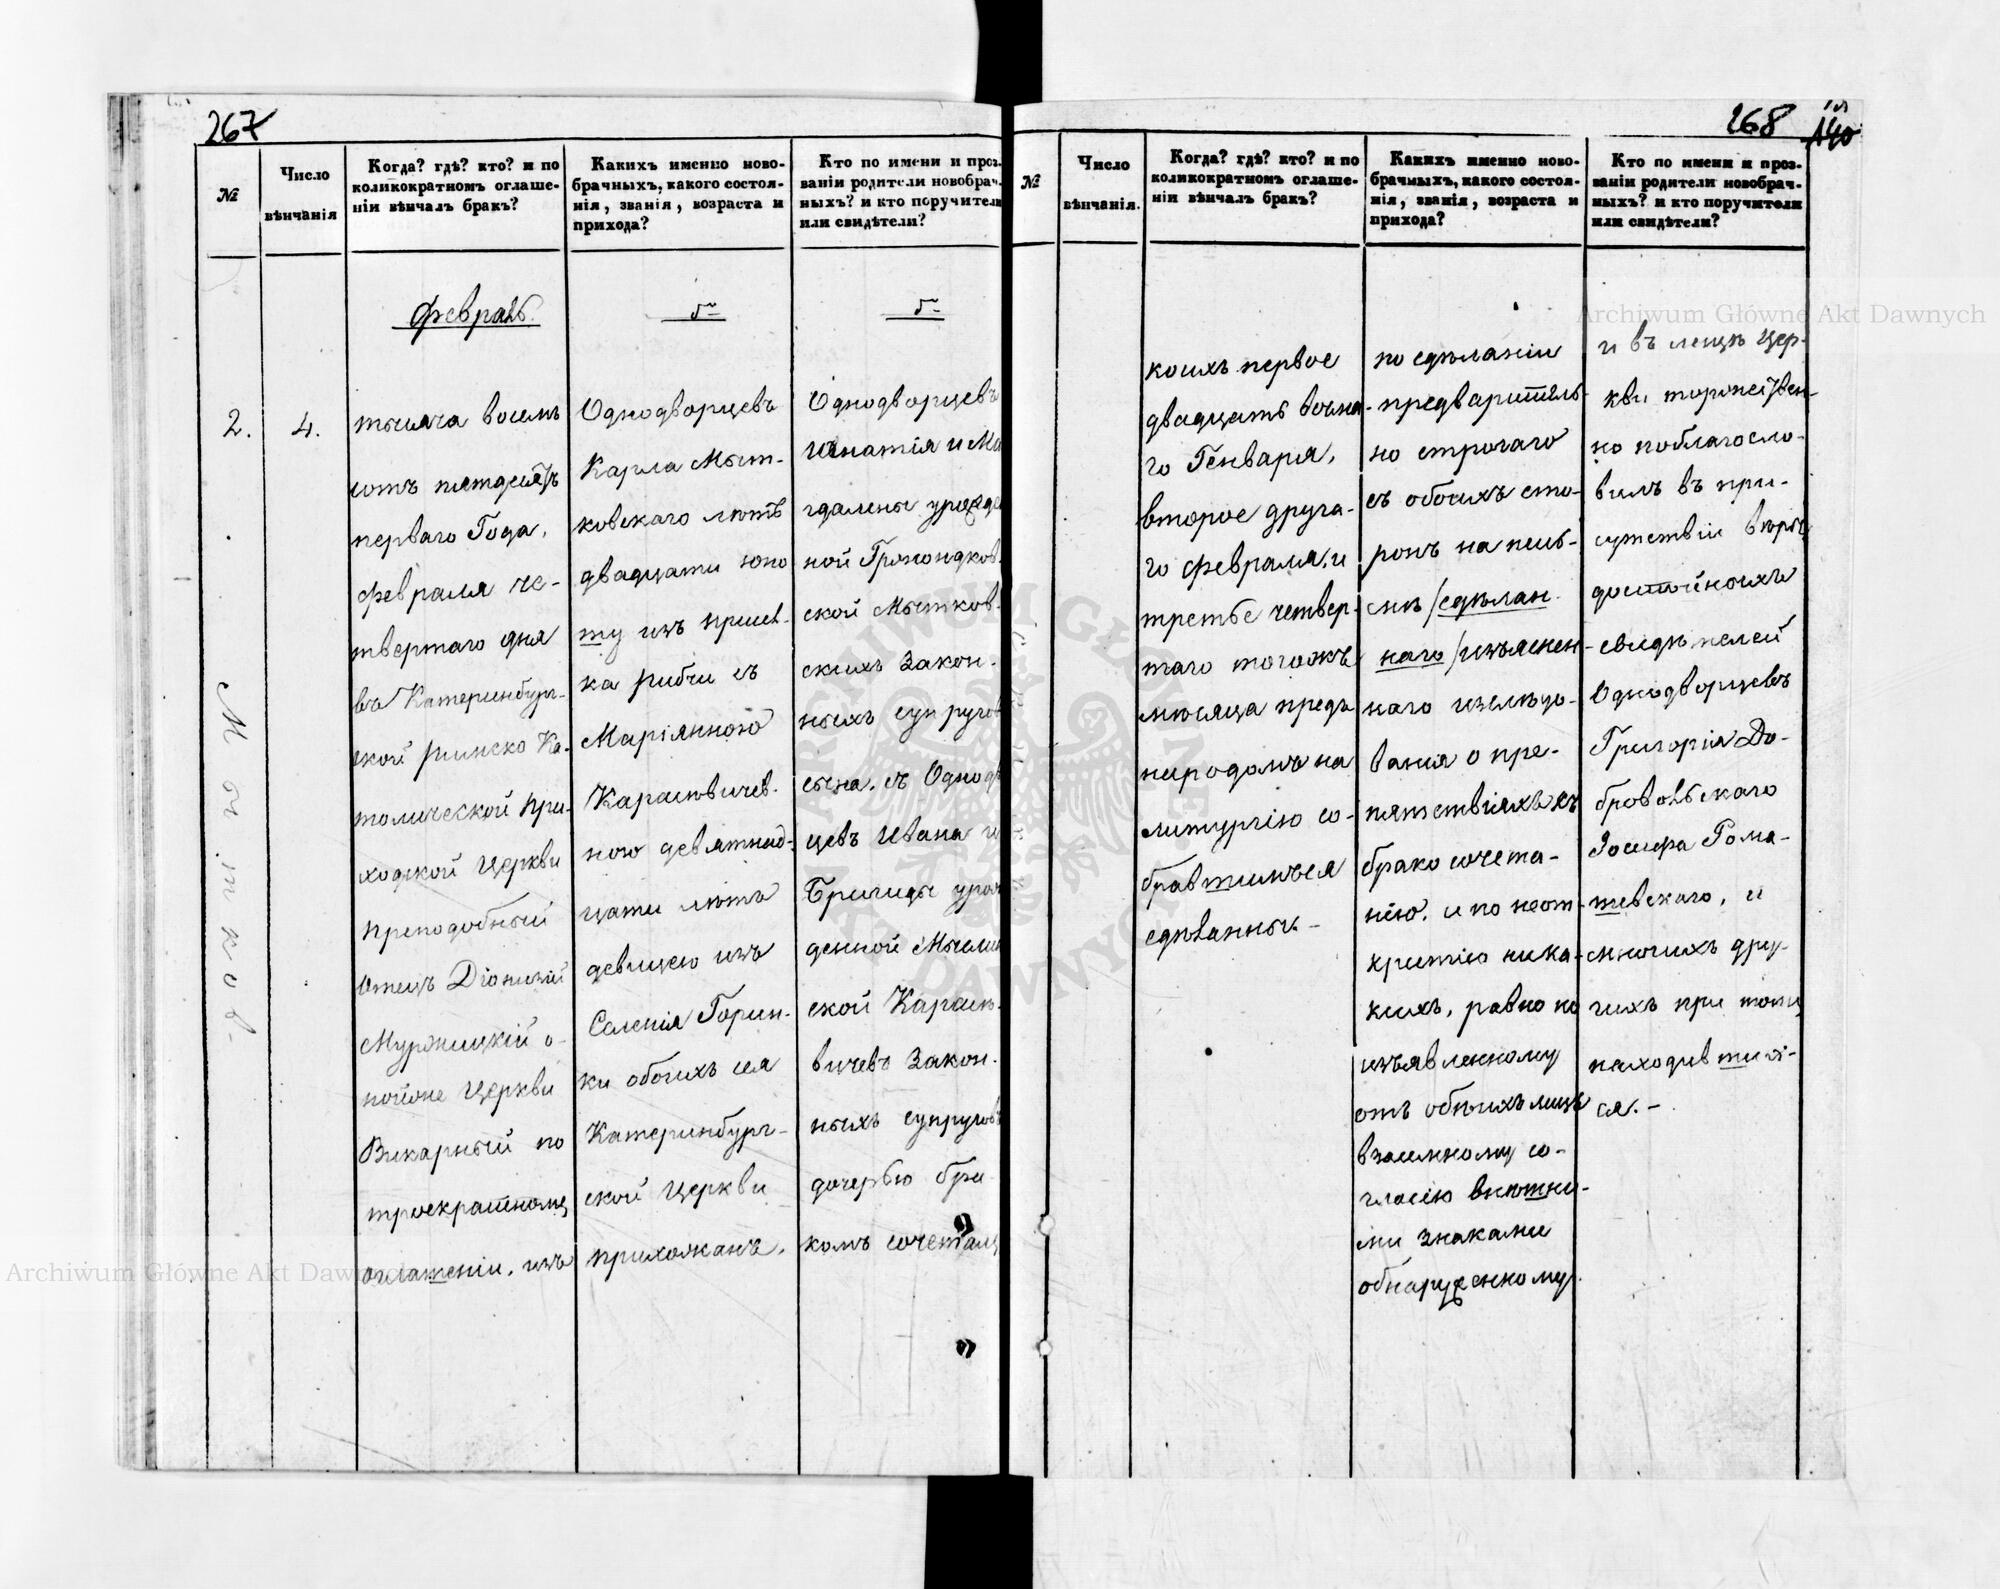 267
№
Число
вѣнчанія
Когда? гдѣ? кто? и по
коликократномъ оглаше-
ніи вѣнчалъ бракъ?
Какихъ именно ново-
брачныхъ, какого состоя-
нія, званія, возраста и
прихода?
Кто по имени и проз-
ваніи родители новобрач-
ныхъ? и кто поручители
или свидѣтели?
Февраль.
2.
4.
тысяча восемь
сотъ пятдесятъ
перваго Года,
февраля че-
твертаго дня
въ Катеринбург-
ской римско Ка-
толической При-
ходской Церкви
Преподобный
Отецъ Діонизій
Муржицкій о-
нойже Церкви
Викарный по
троекратному
оглашеніи, изъ
Однодворцевъ
Карла Мыт-
ковскаго лѣтъ
двадцати юно
шу изъ
ка рыбчи съ
Маріянною
Карасювичев-
ною девятнад-
цати лѣтъ
девицею изъ
Селенія Горин-
ки обоихъ сея
Катеринбург-
ской Церкви
прихожанъ,
Однодворцевъ
Игнатія и Ма
гдалены урожде
ной Громондков
ской Мытков-
скихъ Закон-
ныхъ супруговъ
сына, съ Однодв
цевъ Ивана и
Бригиды урож
денной Мысли
ской Карасю-
вичевъ Закон-
ныхъ супруговъ
дочерью бра
комъ сочеталъ
268
140
№
Число
вѣнчанія.
Когда? гдѣ? кто? и по
коликократномъ оглаше-
ніи вѣнчалъ бракъ?
Какихъ именно ново-
брачныхъ, какого состоя-
нія, званія, возраста и
прихода?
Кто по имени и проз-
ваніи родители новобрач-
ныхъ? и кто поручители
или свидѣтели?
коихъ первое
двадцать восма-
го Генваря,
второе друга-
го февраля, и
третье четвер-
таго тогожъ
мѣсяца предъ
народомъ на
литургію со-
бравшимъся
сдѣланны.-
по сдѣланіи
предваритель-
но строгаго
съ обоихъ сто-
ронъ на пись-
мѣ /сдѣлан-
наго/ изъяснен-
наго изслѣдо-
ванія о пре-
пятствіяхъ къ
брако сочета-
нію, и по неот-
крытію ника-
кихъ, равно по
изъявленному
отъ обоихъ лицъ
взаимному со-
гласію внѣшни-
ми знаками
обнаруженному
и въ лицѣ Цер-
кви торжествен-
но поблагосло-
вилъ въ при-
сутствіи вѣры
достойныхъ
свидѣтелей
Однодворцевъ
Григорія До-
бровольскаго
Іосифа Рома-
шевскаго, и
многихъ дру-
гихъ при томъ
находившихъ-
ся.-
Archiwum Główne Akt Dawnych
Archiwum Główne Akt Dawnych
ARCHIWUM GŁÓWNE AKT DAWNYCH